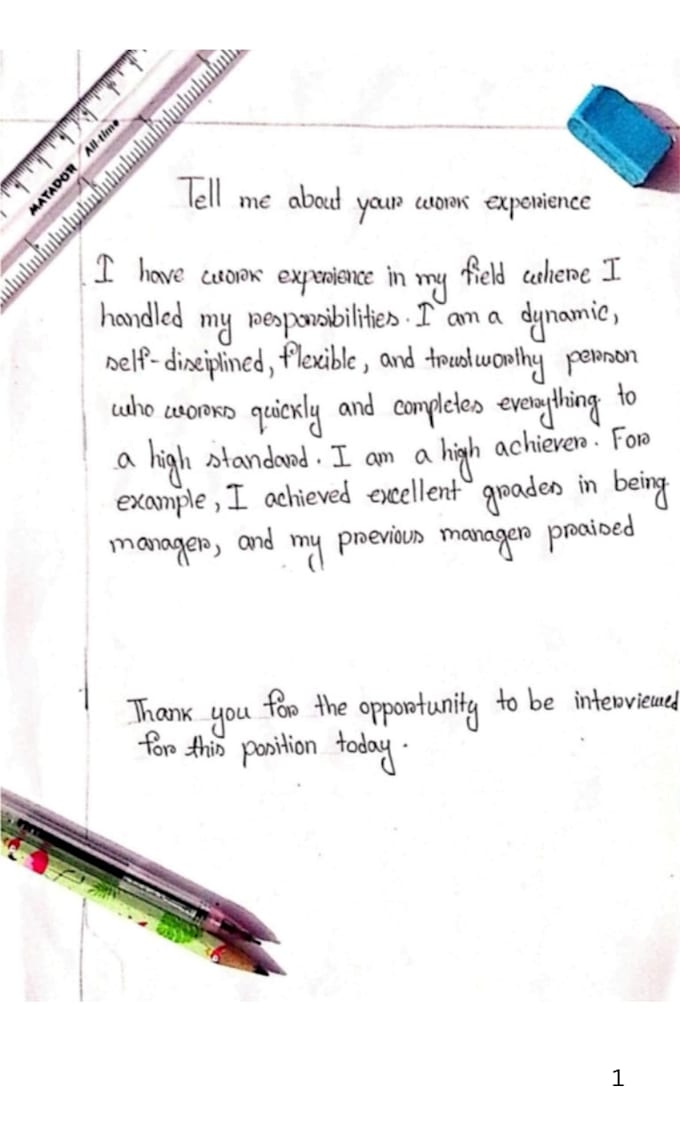 MATADOR All-time
Tell me about your work experience
I have work experience in my field where I
handled my responsibilities. I am a dynamic,
self-disciplined, flexible, and trustworthy person
who works quickly and completes everything to
a high standard. I am a high achiever. For
example, I achieved excellent grades in being
manager, and my previous manager praised
Thank you for the opportunity to be interviewed
for this position today.
1